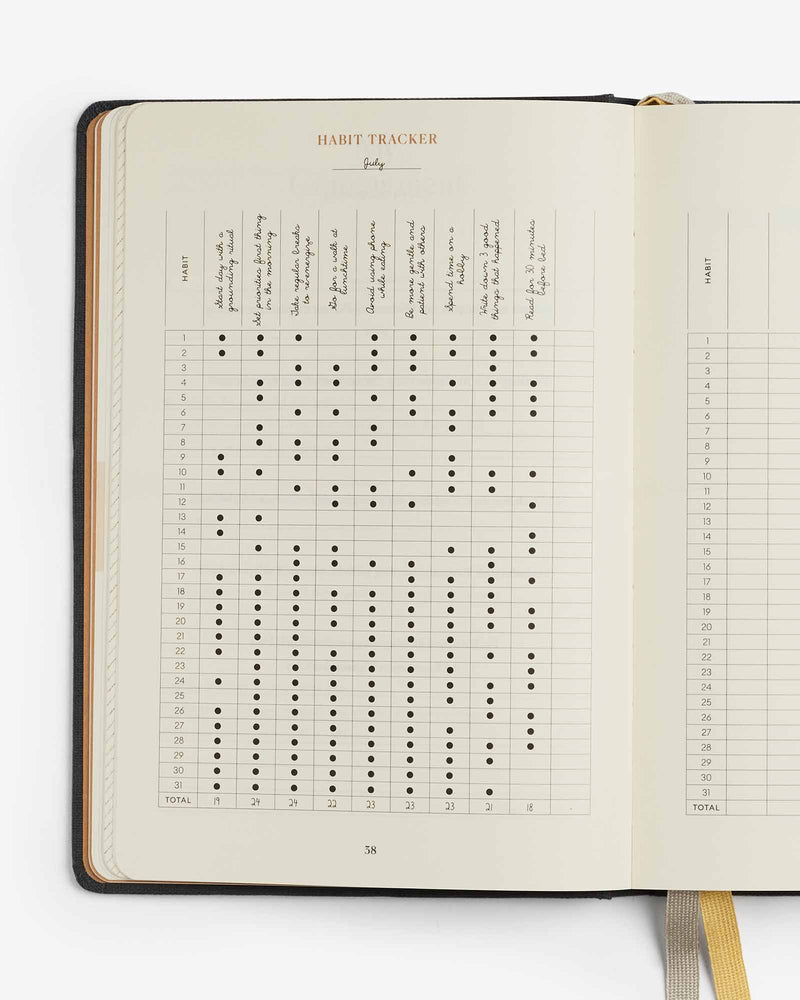 HABIT TRACKER
July
HABIT
Start day with a
grounding ritual
Set priorities first thing
in the morning
Take regular breaks
to reenergize
Go for a walk at
lunchtime
Avoid using phone
while eating
Be more gentle and
patient with others
Spend time on a
hobby
Write down 3 good
things that happened
Read for 30 minutes
before bed
1
2
3
4
5
6
7
8
9
10
11
12
13
14
15
16
17
18
19
20
21
22
23
24
25
26
27
28
29
30
31
TOTAL 19 24 24 22 23 23 23 21 18
38
HABIT
1
2
3
4
5
6
7
8
9
10
11
12
13
14
15
16
17
18
19
20
21
22
23
24
25
26
27
28
29
30
31
TOTAL